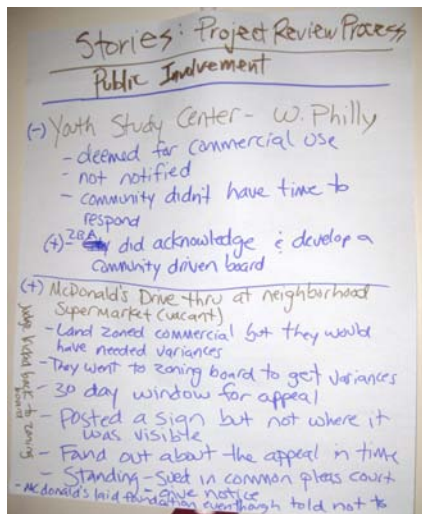 Stories: Project Review Process
Public Involvement
(-) Youth Study Center - W. Philly
- deemed for commercial use
- not notified
- community didn't have time to
respond
(+) - ZBA did acknowledge & develop a
community driven board
(+) McDonald's Drive thru at neighborhood
Supermarket (vacant)
- Land zoned commercial but they would
have needed variances
- They went to zoning board to get variances
- 30 day window for appeal
- Posted a sign but not where it
was visible
- Found out about the appeal in time
- Standing - sued in common pleas court
- give notice
- McDonald's laid foundation eventhough told not to
Judge kicked back to zoning
board